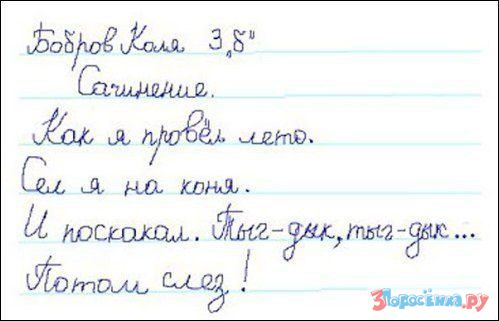 Бобров Коля 3 „б"
Сочинение.
Как я провёл лето.
Сел я на коня.
И поскакал. Тыг-дык, тыг-дык...
Потом слез!
3Поросёнка.ру